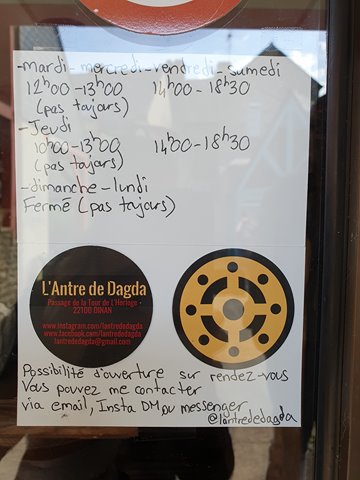 -mardi-mercredi-vendredi-samedi
12h00-13h00 14h00-18h30
(pas tojars)
-Jeudi
10h00-13h00 14h00-18h30
(pas tojars)
-dimanche-lundi
Fermé (pas tojars)
L'Antre de Dagda
Passage de la Tour de L'Horloge •
22100 DINAN
www.instagram.com/lantrededagda
www.facebook.com/lantrededagda
lantrededagda@gmail.com
Possibilité d'ouverture sur rendez-vous
Vous pouvez me contacter
via email, Insta DM ou messenger
@lantrededagda